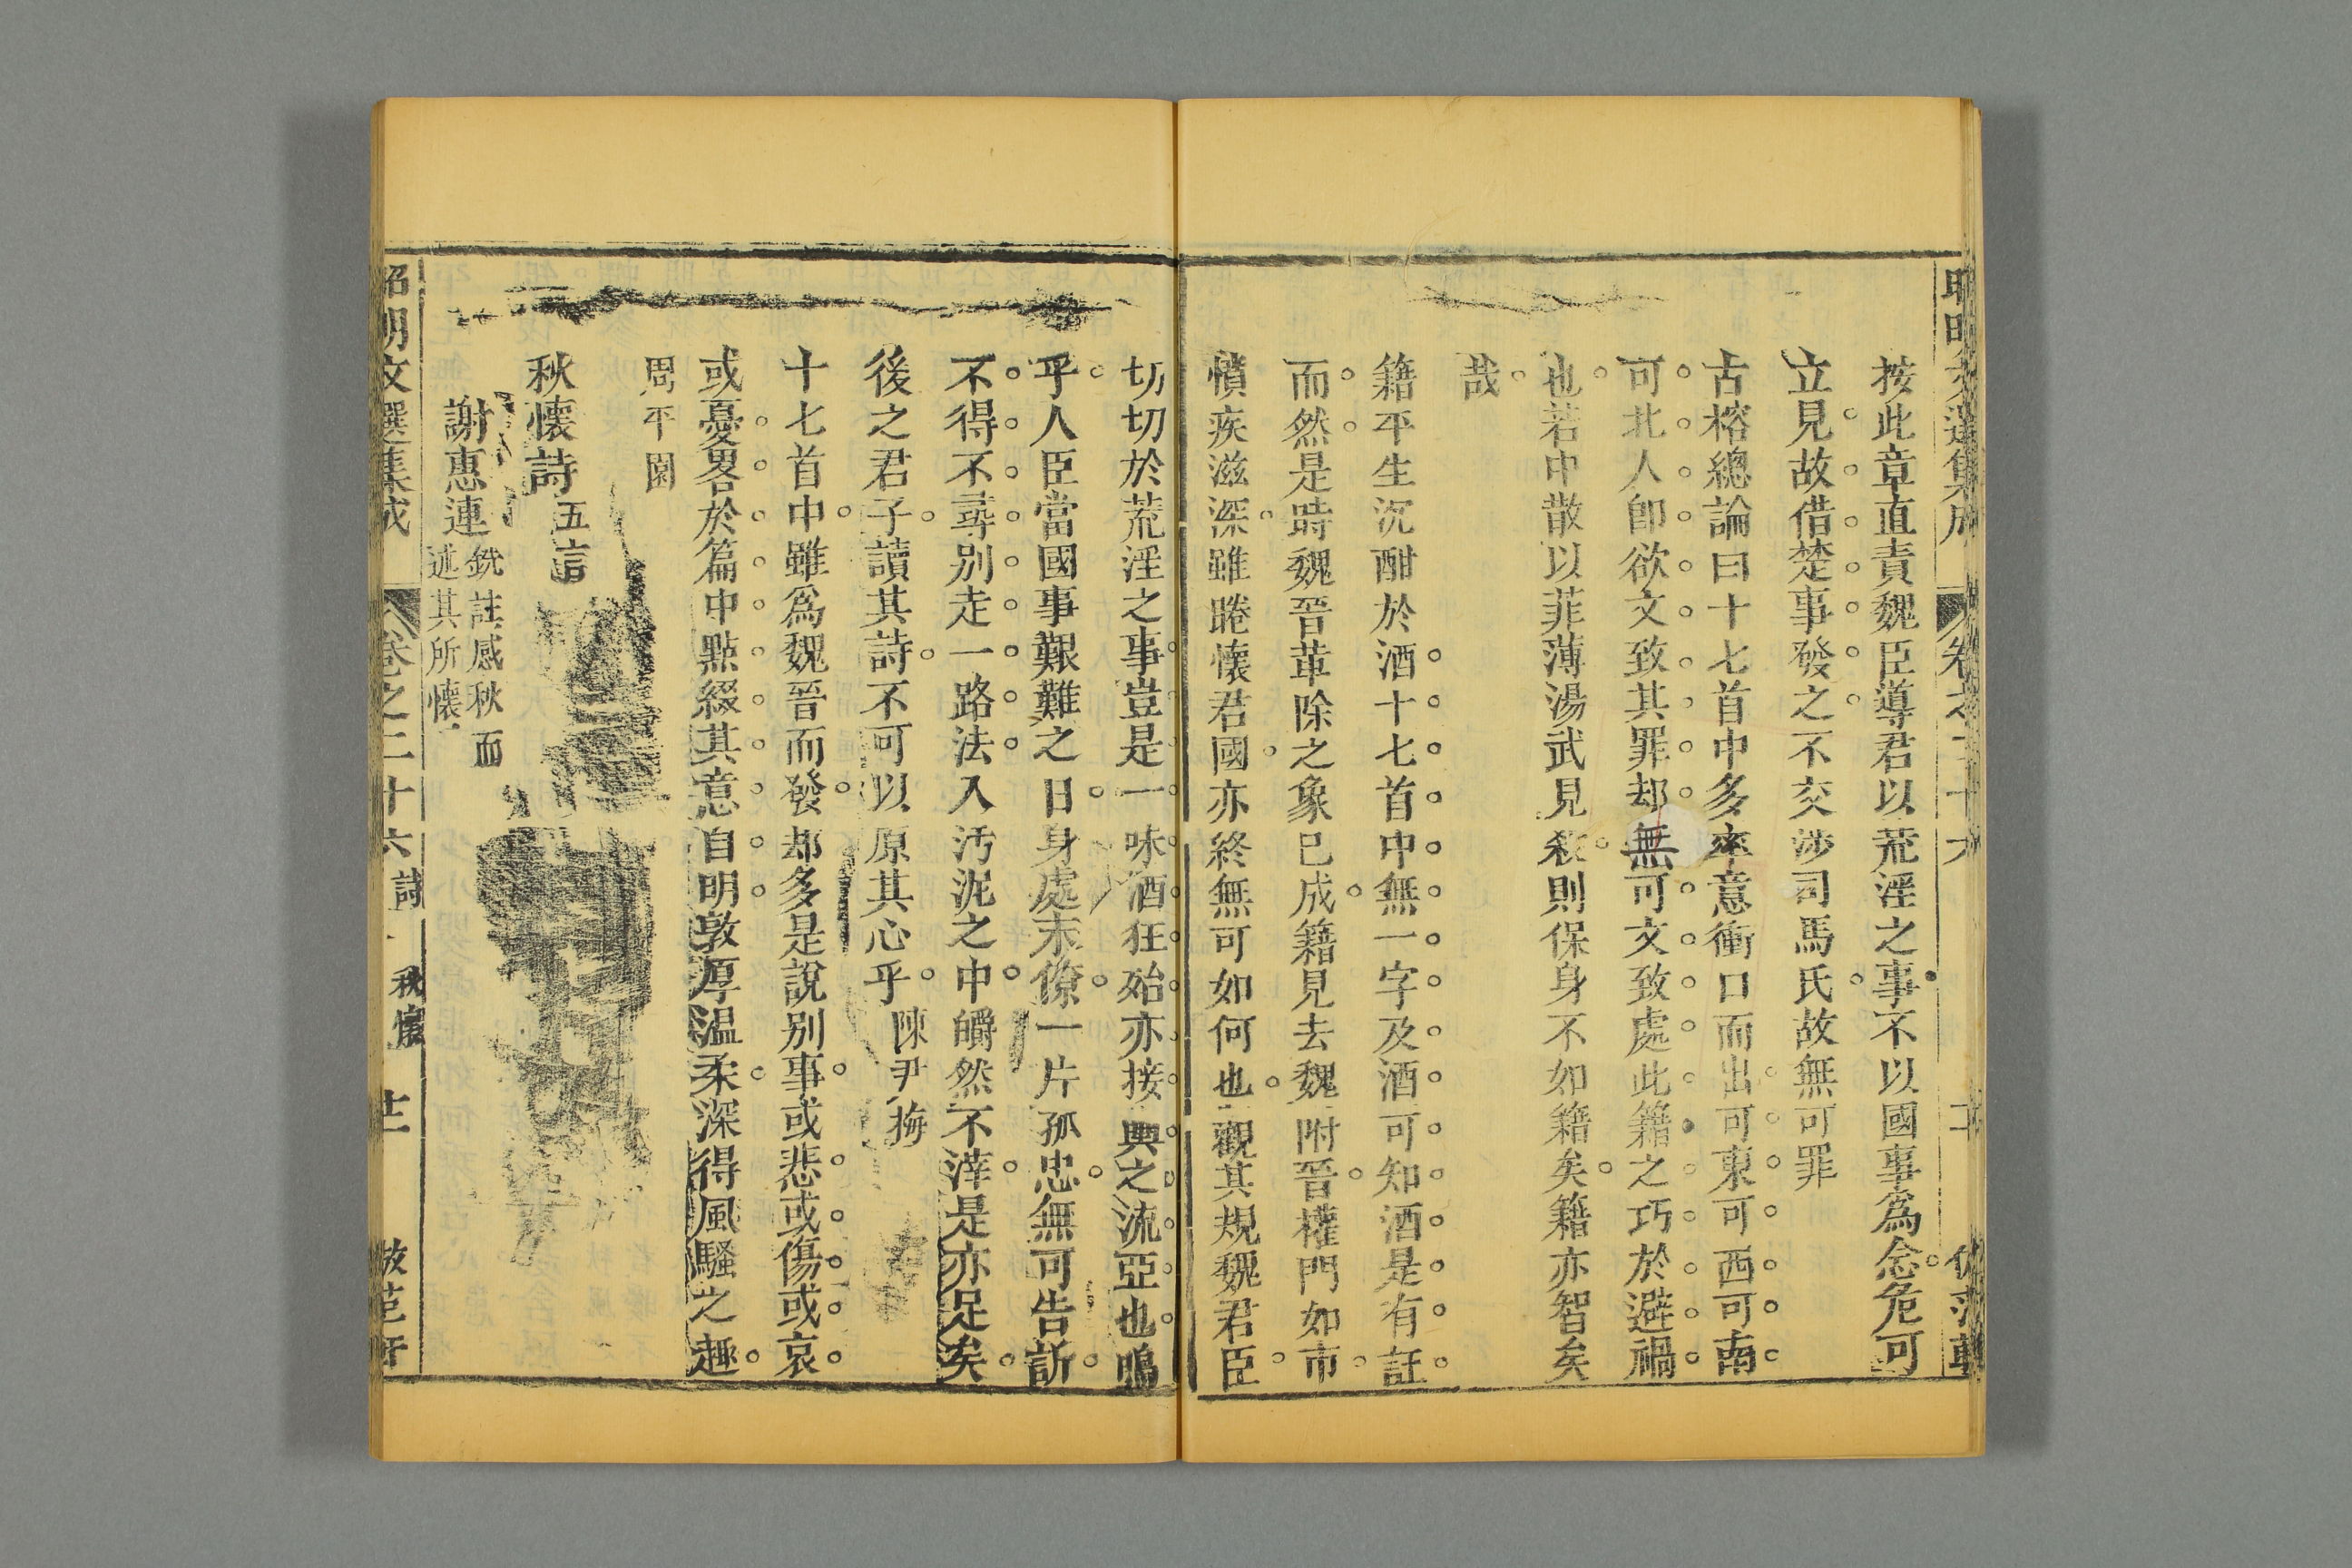 按此章直責魏臣導君以荒淫之事不以國事為念危可
立見故借楚事發之不交渉司馬氏故無可罪
古榕總論曰十七首中多率意衝口而出可東可西可南
可北人卽欲文致其罪却無可文致處此籍之巧於避禍
也若中散以菲薄湯武見殺則保身不如籍矣籍亦智矣
哉
籍平生沉酣於酒十七首中無一字及酒可知酒是有託
而然是時魏晉革除之象已成籍見去魏附晉權門如市
憤疾滋深雖睠懷君國亦終無可如何也觀其規魏君臣
切切於荒淫之事豈是一味酒狂殆亦接輿之流亞也嗚
乎人臣當國事艱難之日身處末僚一片孤忠無可告訴
不得不尋别走一路法入汚泥之中皭然不滓是亦足矣
後之君子讀其詩不可以原其心乎 陳尹梅
十七首中雖爲魏晉而發却多是說别事或悲或傷或哀
或憂畧於篇中點綴其意自明敦厚温柔深得風騷之趣
周平園
秋懷詩 五言
謝惠連 銑註感秋而述其所懷
昭明文選集成 卷之二十六 詩 秋懷